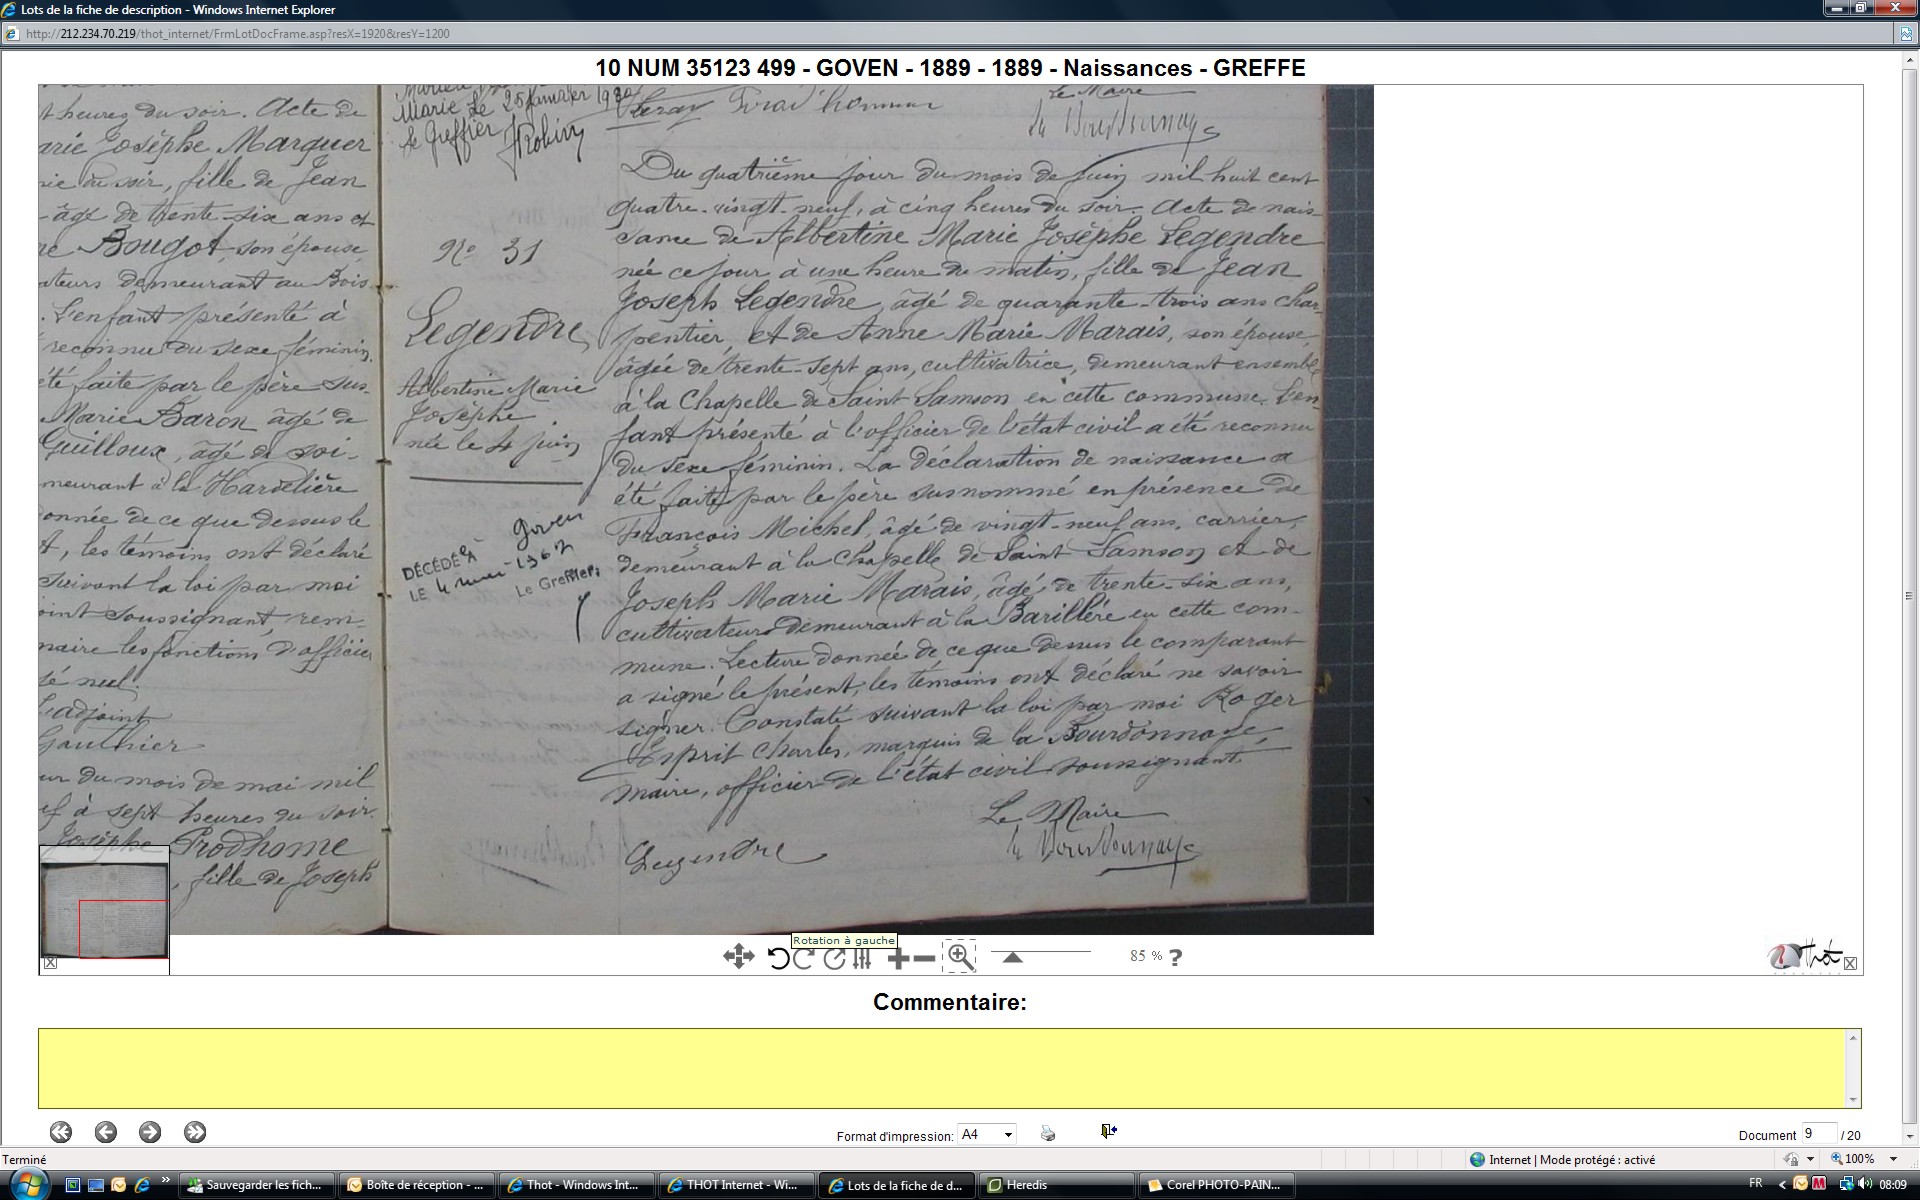 Lots de la fiche de description - Windows Internet Explorer
http://212.234.70.219/thot_internet/FrmLotDocFrame.asp?resX=1920&resY=1200
10 NUM 35123 499 - GOVEN - 1889 - 1889 - Naissances - GREFFE
t heures du soir. Acte de
arie Josèphe Marquer
du soir, fille de Jean
âgé de trente-six ans et
re Bougot, son épouse,
ateurs demeurant au Bois
. L'enfant présenté à
reconnu du sexe féminin.
été faite par le père sus-
Marie Baron âgé de
Guilloux, âgé de soi-
meurant à la Hardelière
onnée de ce que dessus le
t, les témoins ont déclaré
suivant la loi par moi
oint soussignant, rem-
maire les fonctions d'officier
sé neul.
L'adjoint
Gauthier
ur du mois de mai mil
uf à sept heures du soir.
Josèphe Prodhome
, fille de Joseph
Marie Le 25 janvier
Le Greffier
Robin
No 31
Legendre
Albertine Marie
Josèphe
née le 4 juin
Goven
DÉCÉDÉe À
LE 4 mai 1962
Le Greffier:
Prod'homme
Le Maire
La Bourdonnaye
Du quatrième jour du mois de juin mil huit cent
quatre-vingt-neuf, à cinq heures du soir. Acte de nais-
sance de Albertine Marie Josèphe Legendre
née ce jour à une heure du matin, fille de Jean
Joseph Legendre, âgé de quarante-trois ans char-
pentier, et de Anne Marie Marais, son épouse,
âgée de trente-sept ans, cultivatrice, demeurant ensemble
à la Chapelle de Saint Samson en cette commune. L'en-
fant présenté à l'officier de l'état civil a été reconnu
du sexe féminin. La déclaration de naissance a
été faite par le père susnommé en présence de
François Michel, âgé de vingt-neuf ans, carrier,
demeurant à la Chapelle de Saint Samson et de
Joseph Marie Marais, âgé de trente-six ans,
cultivateur demeurant à la Barillère en cette com-
mune. Lecture donnée de ce que dessus le comparant
a signé le présent, les témoins ont déclaré ne savoir
signer. Constaté suivant la loi par moi Roger
Esprit Charles, marquis de la Bourdonnaye,
maire, officier de l'état civil soussignant.
Le Maire
La Bourdonnaye
Legendre
Rotation à gauche
85 % ?
Thot
Commentaire:
Format d'impression: A4
Document 9 / 20
Terminé
Internet | Mode protégé : activé
100%
Sauvegarder les fich...
Boîte de réception - ...
Thot - Windows Int...
THOT Internet - Wi...
Lots de la fiche de d...
Heredis
Corel PHOTO-PAIN...
FR
08:09